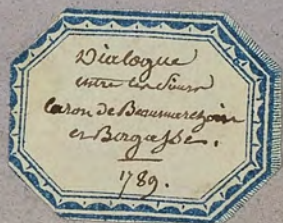 Dialogue
entre les Sieurs
Caron de Beaumarchais
et Bergasse.
1789.